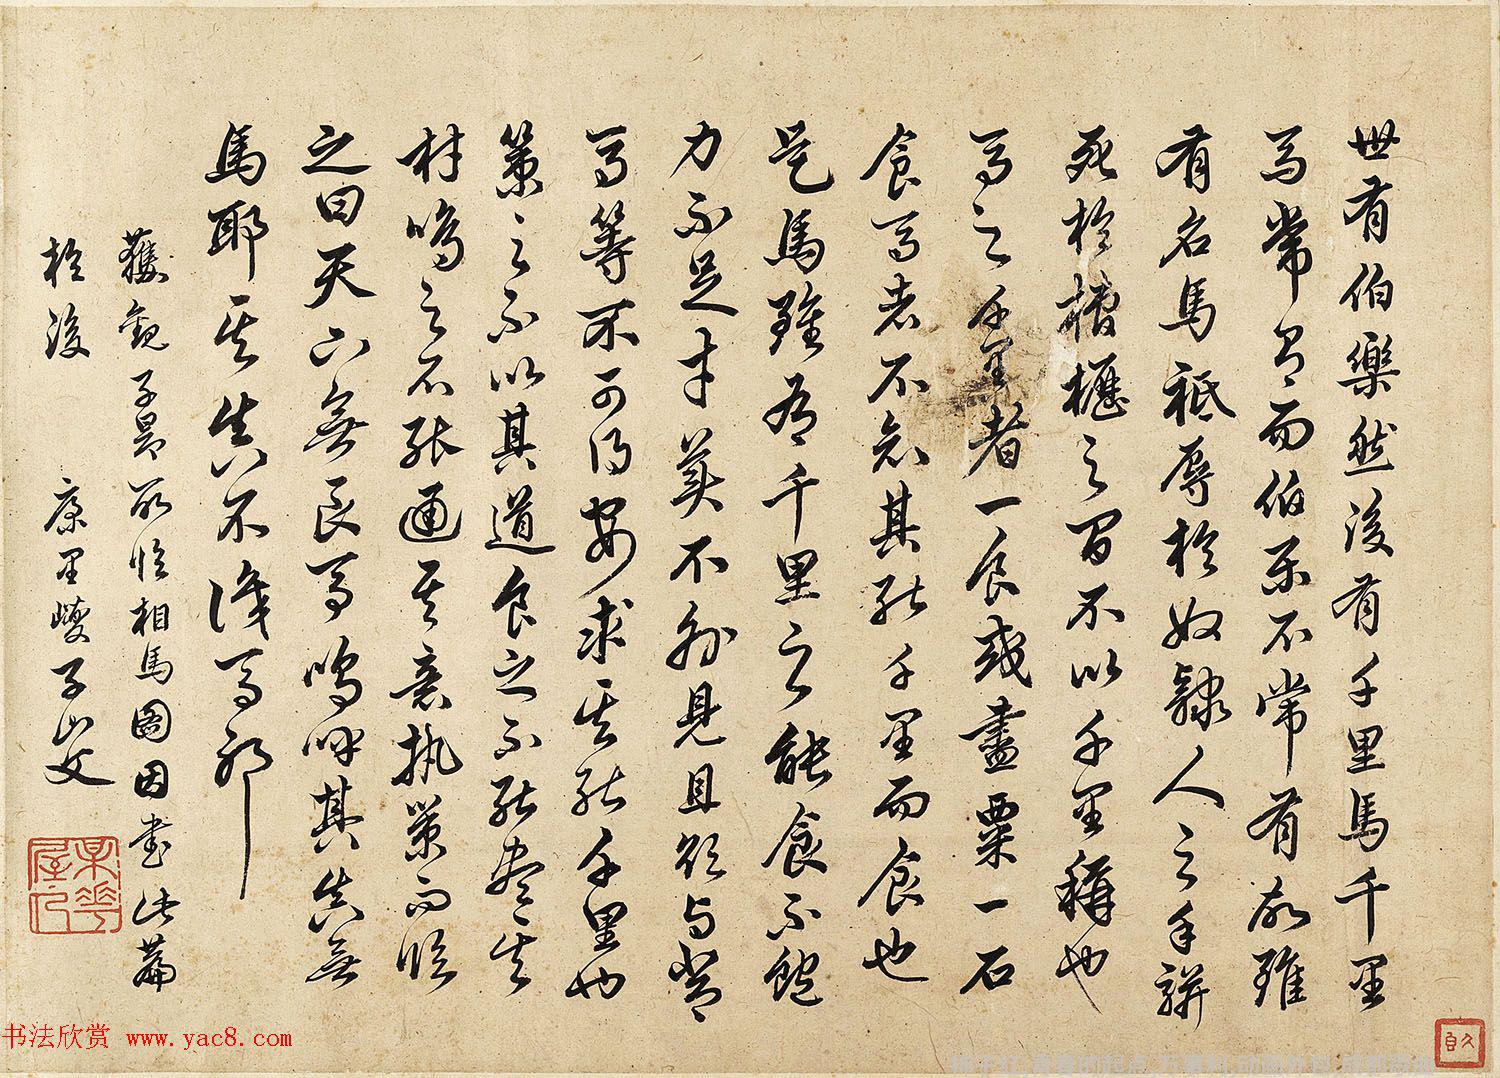 世有伯樂然後有千里馬千里
馬常有而伯樂不常有故雖
有名馬祗辱於奴隸人之手駢
死於槽櫪之間不以千里稱也
馬之千里者一食或盡粟一石
食馬者不知其能千里而食也
是馬雖有千里之能食不飽
力不足才美不外見且欲與常
馬等不可得安求其能千里也
策之不以其道食之不能盡其
材鳴之不能通其意執策而臨
之曰天下無良馬嗚呼其真無
馬耶其真不識馬耶
獲觀子昂所臨相馬圖因書此篇
於後 康里巎子山父
书法欣赏 www.yac8.com